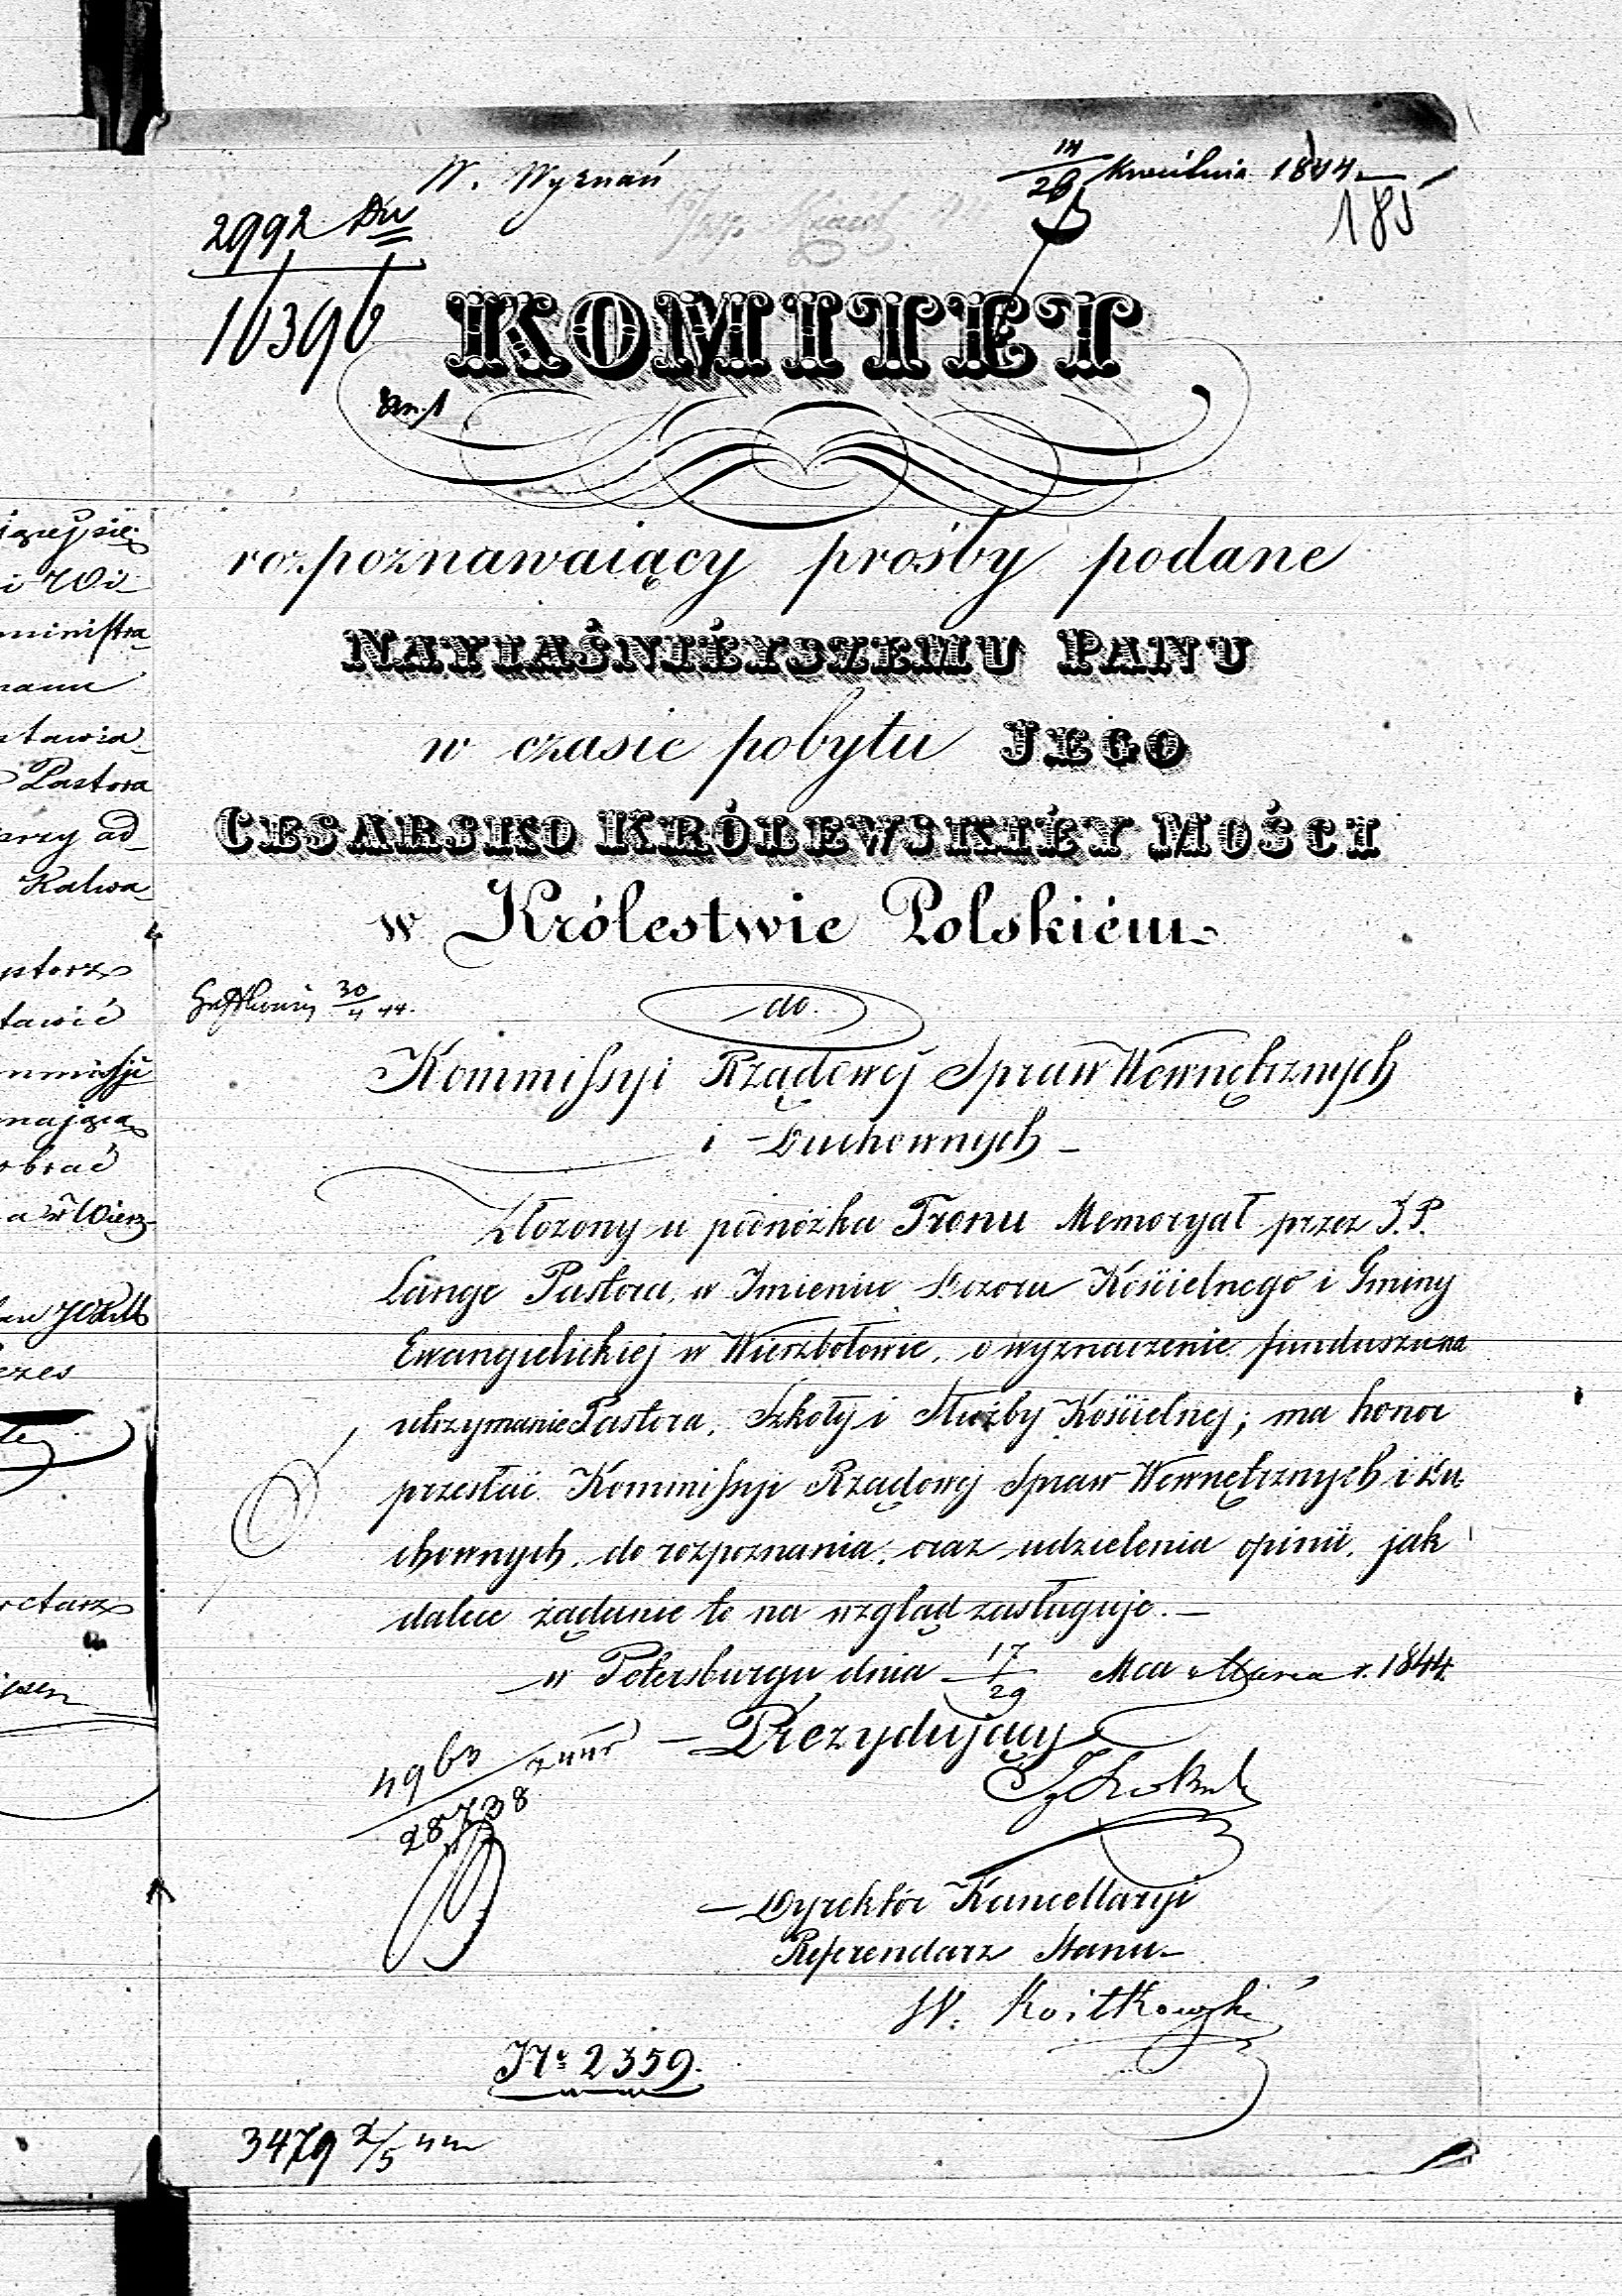 W. Wyznań
14/26 Kwietnia 1844
185
2992
16396
KOMITET
rozpoznawaiący prośby podane
NAYIAŚNIÉYSZEMU PANU
w czasie pobytu JEGO
CESARSKO KRÓLEWSKIÉY MOŚCI
w Królestwie Polskiém
30/4 44.
do
Kommissyi Rządowej Spraw Wewnętrznych
i Duchownych
Złożony u podnóżka Tronu Memoryał przez J.P.
Lange Pastora, w Imieniu Dozoru Kościelnego i Gminy
Ewangielickiej w Wierzbołowie, o wyznaczenie funduszu na
utrzymanie Pastora, Szkoły i Służby Kościelnej; ma honor
przesłać Kommissyi Rządowej Spraw Wewnętrznych i Du-
chownych, do rozpoznania, oraz udzielenia opinii, jak
dalece żądanie to na wzgląd zasługuje.
w Petersburgu dnia 17/29 Mca Marca r. 1844.
Prezydujący
4963
28738
Dyrektór Kancellaryi
Referendarz Stanu
No 2359.
3479 2/5 44
igzej się
i Wi-
ministra-
Pastora
arzy ad-
Kalwa-
tawić
mmissji
brać
a w Wierz-
ezes